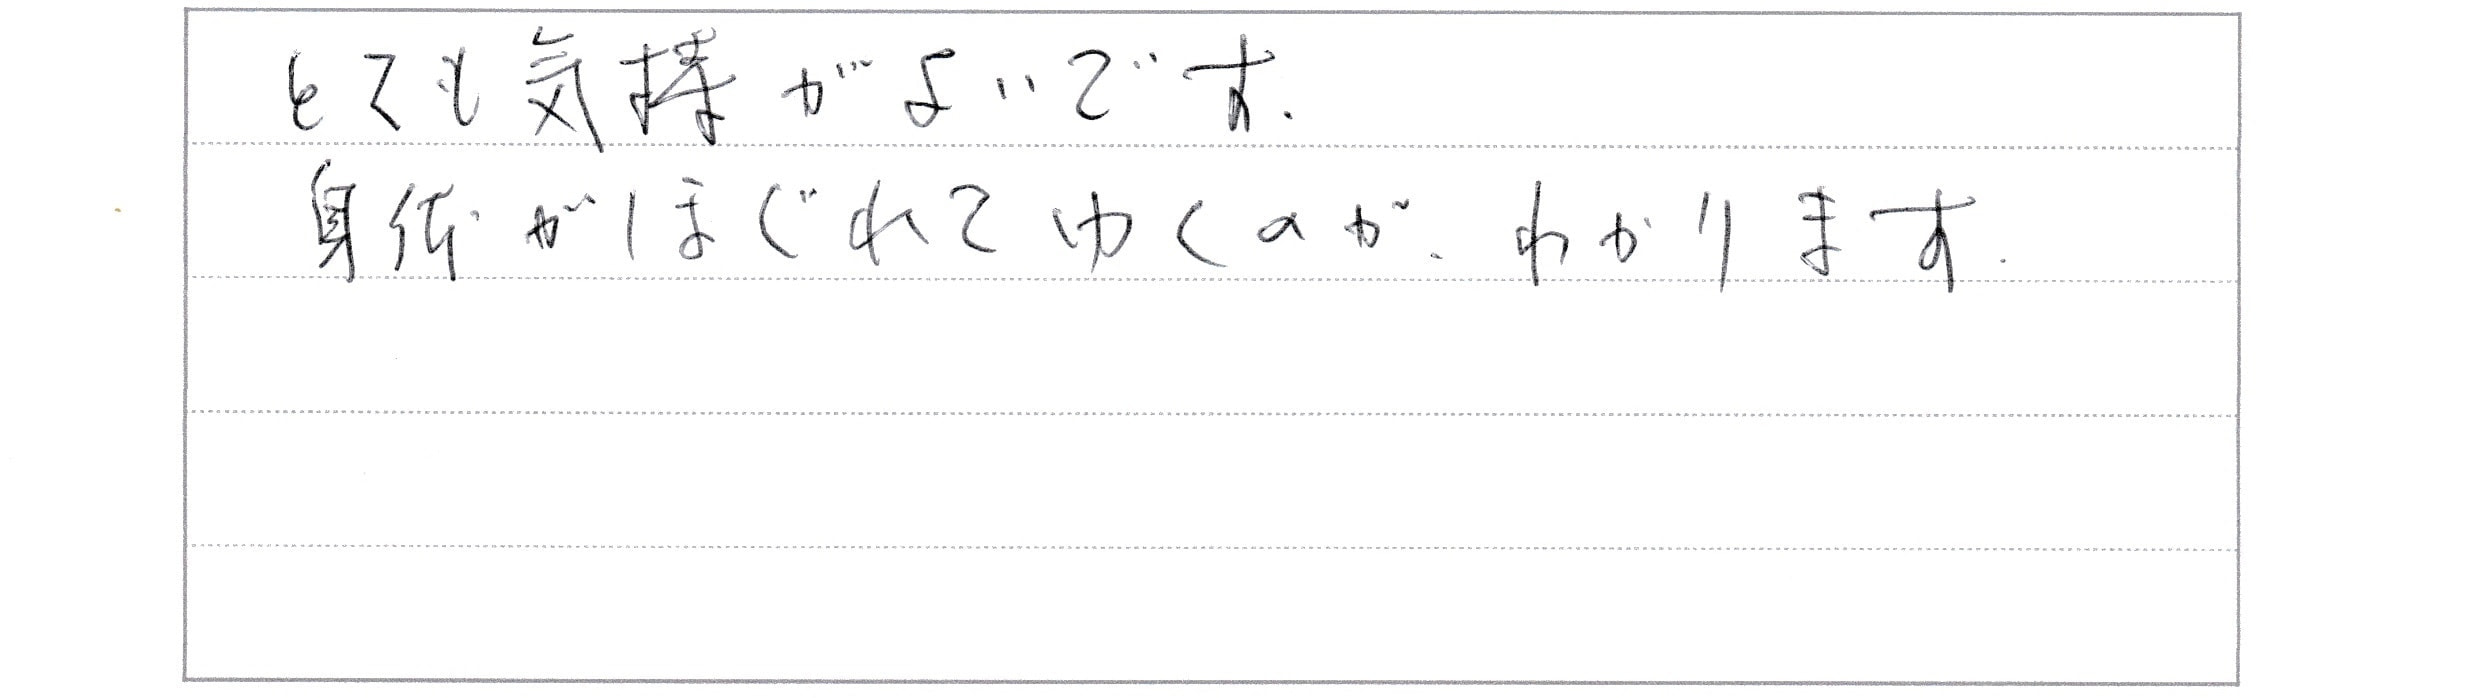 とても気持がよいです.
身体がほぐれてゆくのが、わかります.